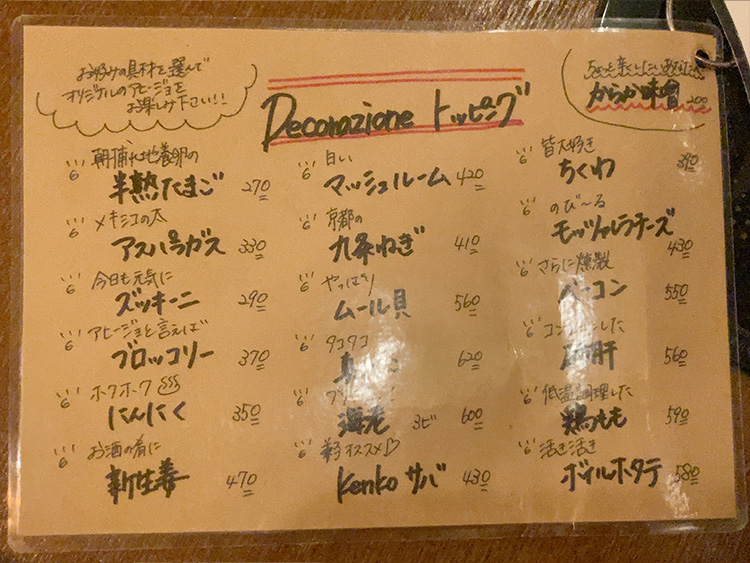 お好みの具材を選んで
オリジナルのアヒージョを
お楽しみ下さい!!
Decorazione トッピング
ちょっと辛くしたいあなたへ
からか味噌 200
朝捕れ地養卵の
半熟たまご 270
メキシコの太
アスパラガス 330
今日も元気に
ズッキーニ 290
アヒージョと言えば
ブロッコリー 370
ホクホク
にんにく 350
お酒の肴に
新生姜 470
白い
マッシュルーム 420
京都の
九条ねぎ 410
やっぱり
ムール貝 560
タコタコ
620
海老 3ピ 600
オススメ♡
Kenko サバ 430
皆大好き
ちくわ 390
のび〜る
モッツァレラチーズ
430
さらに燻製
ベーコン 550
した
砂肝 560
低温調理した
鶏もも 590
活き活き
ボイルホタテ 580